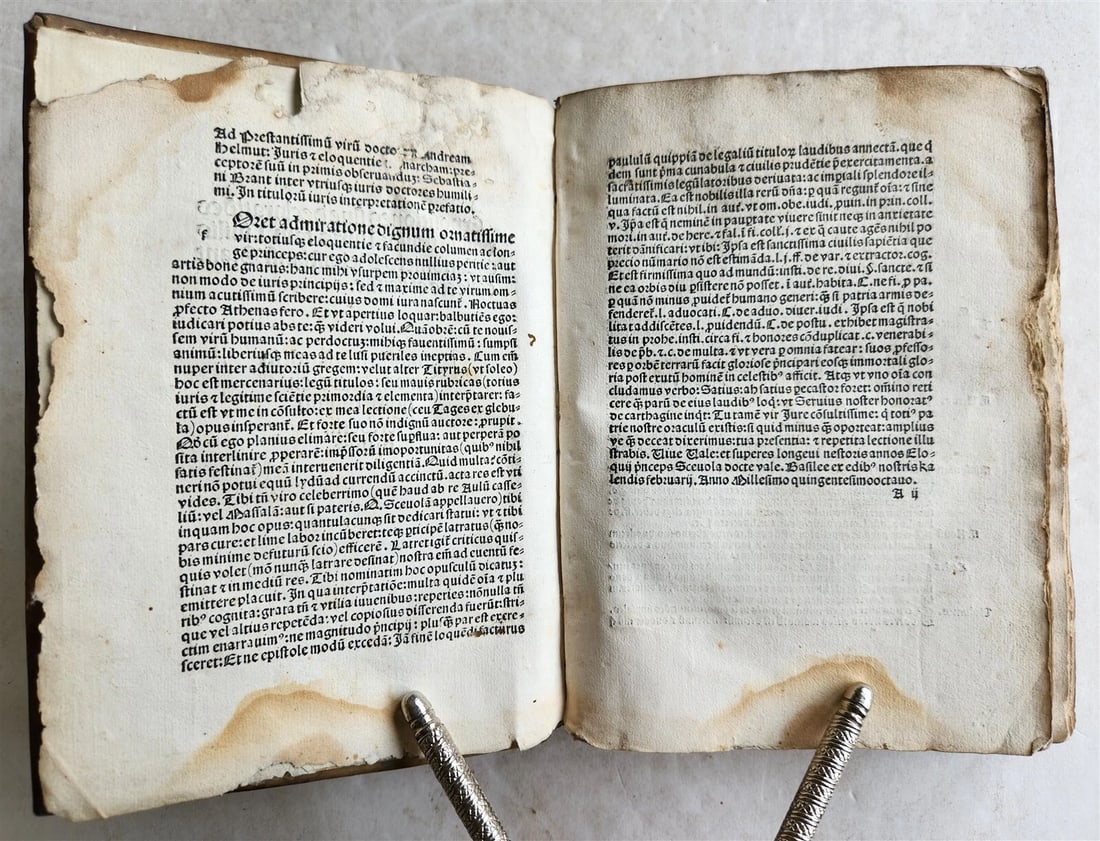 Ad Prestantissimū virū docto Andream
Helmut: Juris ⁊ eloquentie monarcham: pre-
ceptorē suū in primis obseruanduʒ: Sebastia-
ni Brant inter vtriusqʒ iuris doctores humili-
mi. In titulorū iuris interpretationē prefatio.
f Oret admiratione dignum ornatissime
vir: totiusqʒ eloquentie ⁊ facundie columen ac lon-
ge princeps: cur ego adolescens nullius penitꝰ: aut
artis bone gnarus: hanc mihi vsurpem prouinciaʒ: vt ausim:
non modo de iuris principijs: sed ⁊ maxime ad te virum om-
nium acutissimū scribere: cuius domi iura nascunt᷑. Noctuas
ꝓfecto Athenas fero. Et vt apertius loquar: balbutiēs ego:
iudicari potius abs te: qʒ videri volui. Quāobrē: cū te nouis-
sem virū humanū: ac perdoctuʒ: mihiqʒ fauentissimū: sumpsi
animū: liberiusqʒ meas ad te lusi pueriles ineptias. Cum em̄
nuper inter adiutoriū gregem: velut alter Tityrus (vt soleo)
hoc est mercenarius: legū titulos: seu mauis rubricas (totius
iuris ⁊ legitime sciētie primordia ⁊ elementa) interp̄tarer: fa-
ctū est vt me in cōsulto: ex mea lectione (ceu Tages ex glebu-
la) opus insperant᷑. Et forte suo nō indignū auctore: ꝓrupit.
Nō cū ego planius elimāre: seu forte suꝑflua: aut perperā po
sita interlinire ꝓperarē: imp̄ssorū imoportunitas (quibꝰ nihil
satis festinat᷑) meā interuenerit diligentiā. Quid multaʔ cōti-
neri nō potui equū lydū ad currendū accinctū. acta res est vti
vides. Tibi tn̄ viro celeberrimo (quē haud ab re Aulū casse-
liū: vel Massalā: aut si pateris. Q. Sceuolā appellauero) tibi
inquam hoc opus: quantulacunqʒ sit dedicari statui: vt ⁊ tibi
pars cure: et lime labor incūberet: teqʒ ꝑticipē latratus (qʒ no-
bis minime defuturū scio) efficerē. Latret igit᷑ criticus quis-
quis volet (mō nunqʒ latrare desinat) nostra em̄ ad euentū fe-
stinat ⁊ in mediū res. Tibi nominatim hoc opusculū dicatuʒ:
emittere placuit. In qua interp̄tatiōe: multa quidē oīa ⁊ plu
ribꝰ cognita: grata tn̄ ⁊ vtilia iuuenibus: reperies: nōnulla tn̄
que vel altius repetēda: vel copiosius disserenda fuerūt: stri-
ctim enarrauimꝰ: ne magnitudo p̄ncipij: plusqʒ par est excre-
sceret: Et ne epistole modū excedā: Jā finē loquēdi facturus
paululū quippiā de legaliū tituloꝝ laudibus annectā. que qͥ
dem sunt p̄ma cunabula ⁊ ciuilis prudētie p̄exercitamenta. a
sacratissimis legūlatoribus deriuata: ac imꝑiali splendore il-
luminata. Ea est nobilis illa rerū dn̄a: ꝑ quā regunt᷑ oīa: ⁊ sine
qua factū est nihil. in aut᷑. vt om. obe. iudi. ꝓuin. in prin. coll.
v. Ip̄a est q̄ neminē in pauptate viuere sinit neqʒ in anxietate
mori. in aut᷑. de here. ⁊ fal. i. fi. coll. j. ⁊ ex q̄ caute agēs nihil po
terit dānificari: vt ibi: Ipsa est sanctissima ciuilis sapiētia que
precio nūmario nō est estimāda. l. j. ff. de var. ⁊ extractor. cog.
Et est firmissima quo ad mundū: insti. de re. diui. §. sancte. ⁊ si
ne ea orbis diu ꝑsistere nō posset. i. aut᷑. habita. C. ne fi. ꝓ pa.
ꝑ quā nō minus ꝓuidet᷑ humano generi: qʒ si patria armis de-
fenderet᷑. l. aduocati. C. de aduo. diuer. iudi. Ipsa est q̄ nobi
litat addiscētes. l. ꝓuidendū. C. de postu. exhibet magistra-
tus in prohe. insti. circa fi. ⁊ honores cōduplicat. c. venerabi-
lis de p̄b. ⁊. c. de multa. ⁊ vt vera ꝑ omnia fatear: suos ꝓfesso-
res ꝑ orbē terrarū facit gloriose p̄ncipari eosqʒ immortali glo-
ria post exutū hominē in celestibꝰ afficit. Atqʒ vt vno oīa con
cludamus verbo: Satius: ab satius peccastor foret: om̄ino reti
cere qʒ parū de eius laudibꝰ loq̇: vt Seruius noster honoratꝰ
de carthagine inqͥt: Tu tamē vir Jure cōsultissime: q̇ totiꝰ pa
trie nostre oraculū existis: si quid minus qʒ oporteat: amplius
ve qʒ deceat dixerimus: tua presentia: ⁊ repetita lectione illu
strabis. Viue Vale: et superes longeui nestoris annos Elo-
quij p̄nceps Sceuola docte vale. Basilee ex edibꝰ nostris ka
lendis februarij. Anno Millesimo quingentesimooctauo.
A ij